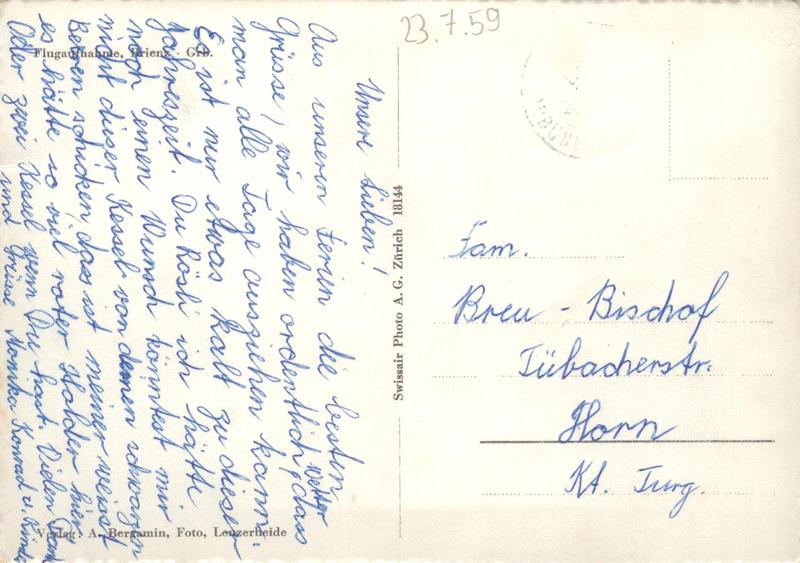 23.7.59
Flugaufnahme, Brienz - Grb.
Unsere Lieben!
Aus unsern Ferien die besten
Grüsse! wir haben ordentlich Wetter, dass
man alle Tage ausgiehen kann.
Es ist nur etwas kalt zu dieser
Jahreszeit. Du Rösli ich hätte
noch einen Wunsch könntest mir
nicht dieser Kessel von denen schwarzen
Beeren schicken, das ist meiner weisst
es hätte so viel roter Holder hier
Oder zwei Kessel wenn Du hast. Vielen Dank
und Grüsse Monika Konrad u. Kinder
Verlag: A. Bergamin, Foto, Lenzerheide
Swissair Photo A. G. Zürich 18144
Fam.
Breu - Bischof
Tübacherstr.
Horn
Kt. Turg.